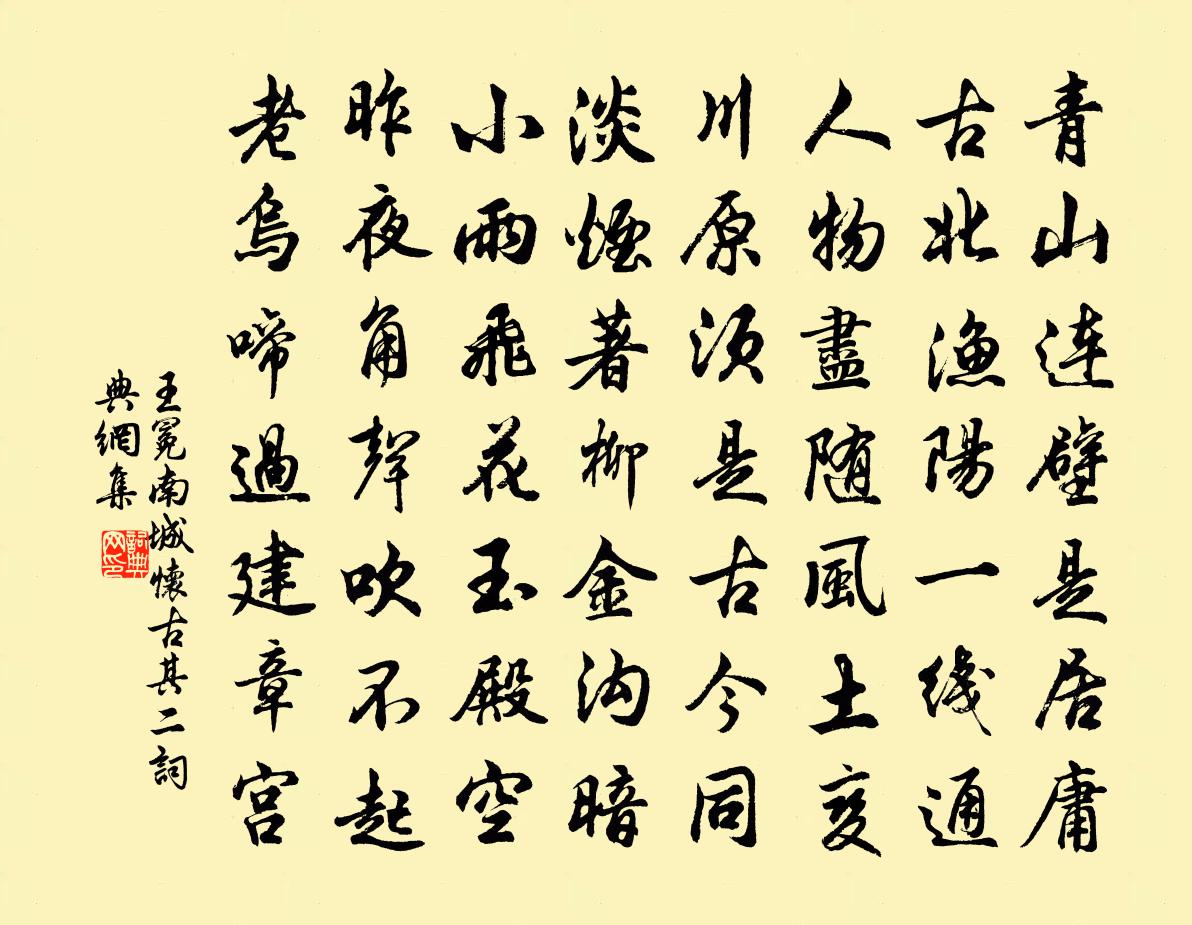 青山連壁是居庸
古北漁陽一线通
人物盡随風土变
川原須是古今同
淡煙著柳金沟暗
小雨飛花玉殿空
昨夜角聲吹不起
老烏啼過建章宮
王冕南城懷古其二詞
典網集
詞典
网印